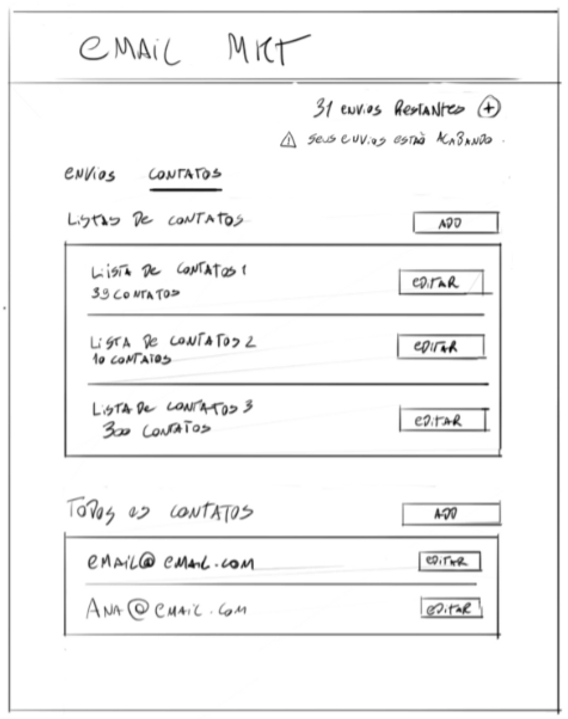 EMAIL MKT
31 ENVIOS RESTANTES +
! SEUS ENVIOS ESTÃO ACABANDO.
ENVIOS CONTATOS
LISTAS DE CONTATOS ADD
LISTA DE CONTATOS 1
39 CONTATOS EDITAR
LISTA DE CONTATOS 2
10 CONTATOS EDITAR
LISTA DE CONTATOS 3
300 CONTATOS EDITAR
TODOS OS CONTATOS ADD
EMAIL@EMAIL.COM EDITAR
ANA@EMAIL.COM EDITAR